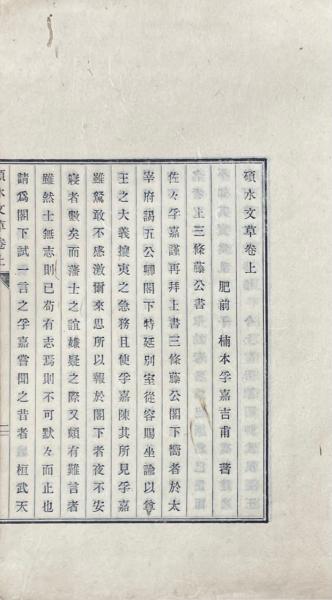 碩水文草卷上
肥前 楠本孚嘉吉甫 著
上三條藤公書
佐々孚嘉謹再拜上書三條藤公閣下嚮者於太
宰府謁五公卿閣下特延別室從容賜坐論以尊
王之大義攘夷之急務且使孚嘉陳其所見孚嘉
雖駑敢不感激爾來思所以報於閣下者夜不安
寢者數矣而藩士之誼嫌疑之際又頗有難言者
雖然士無志則已苟有志焉則不可默々而止也
請爲閣下試一言之孚嘉嘗聞之昔者 桓武天
碩水文草卷上